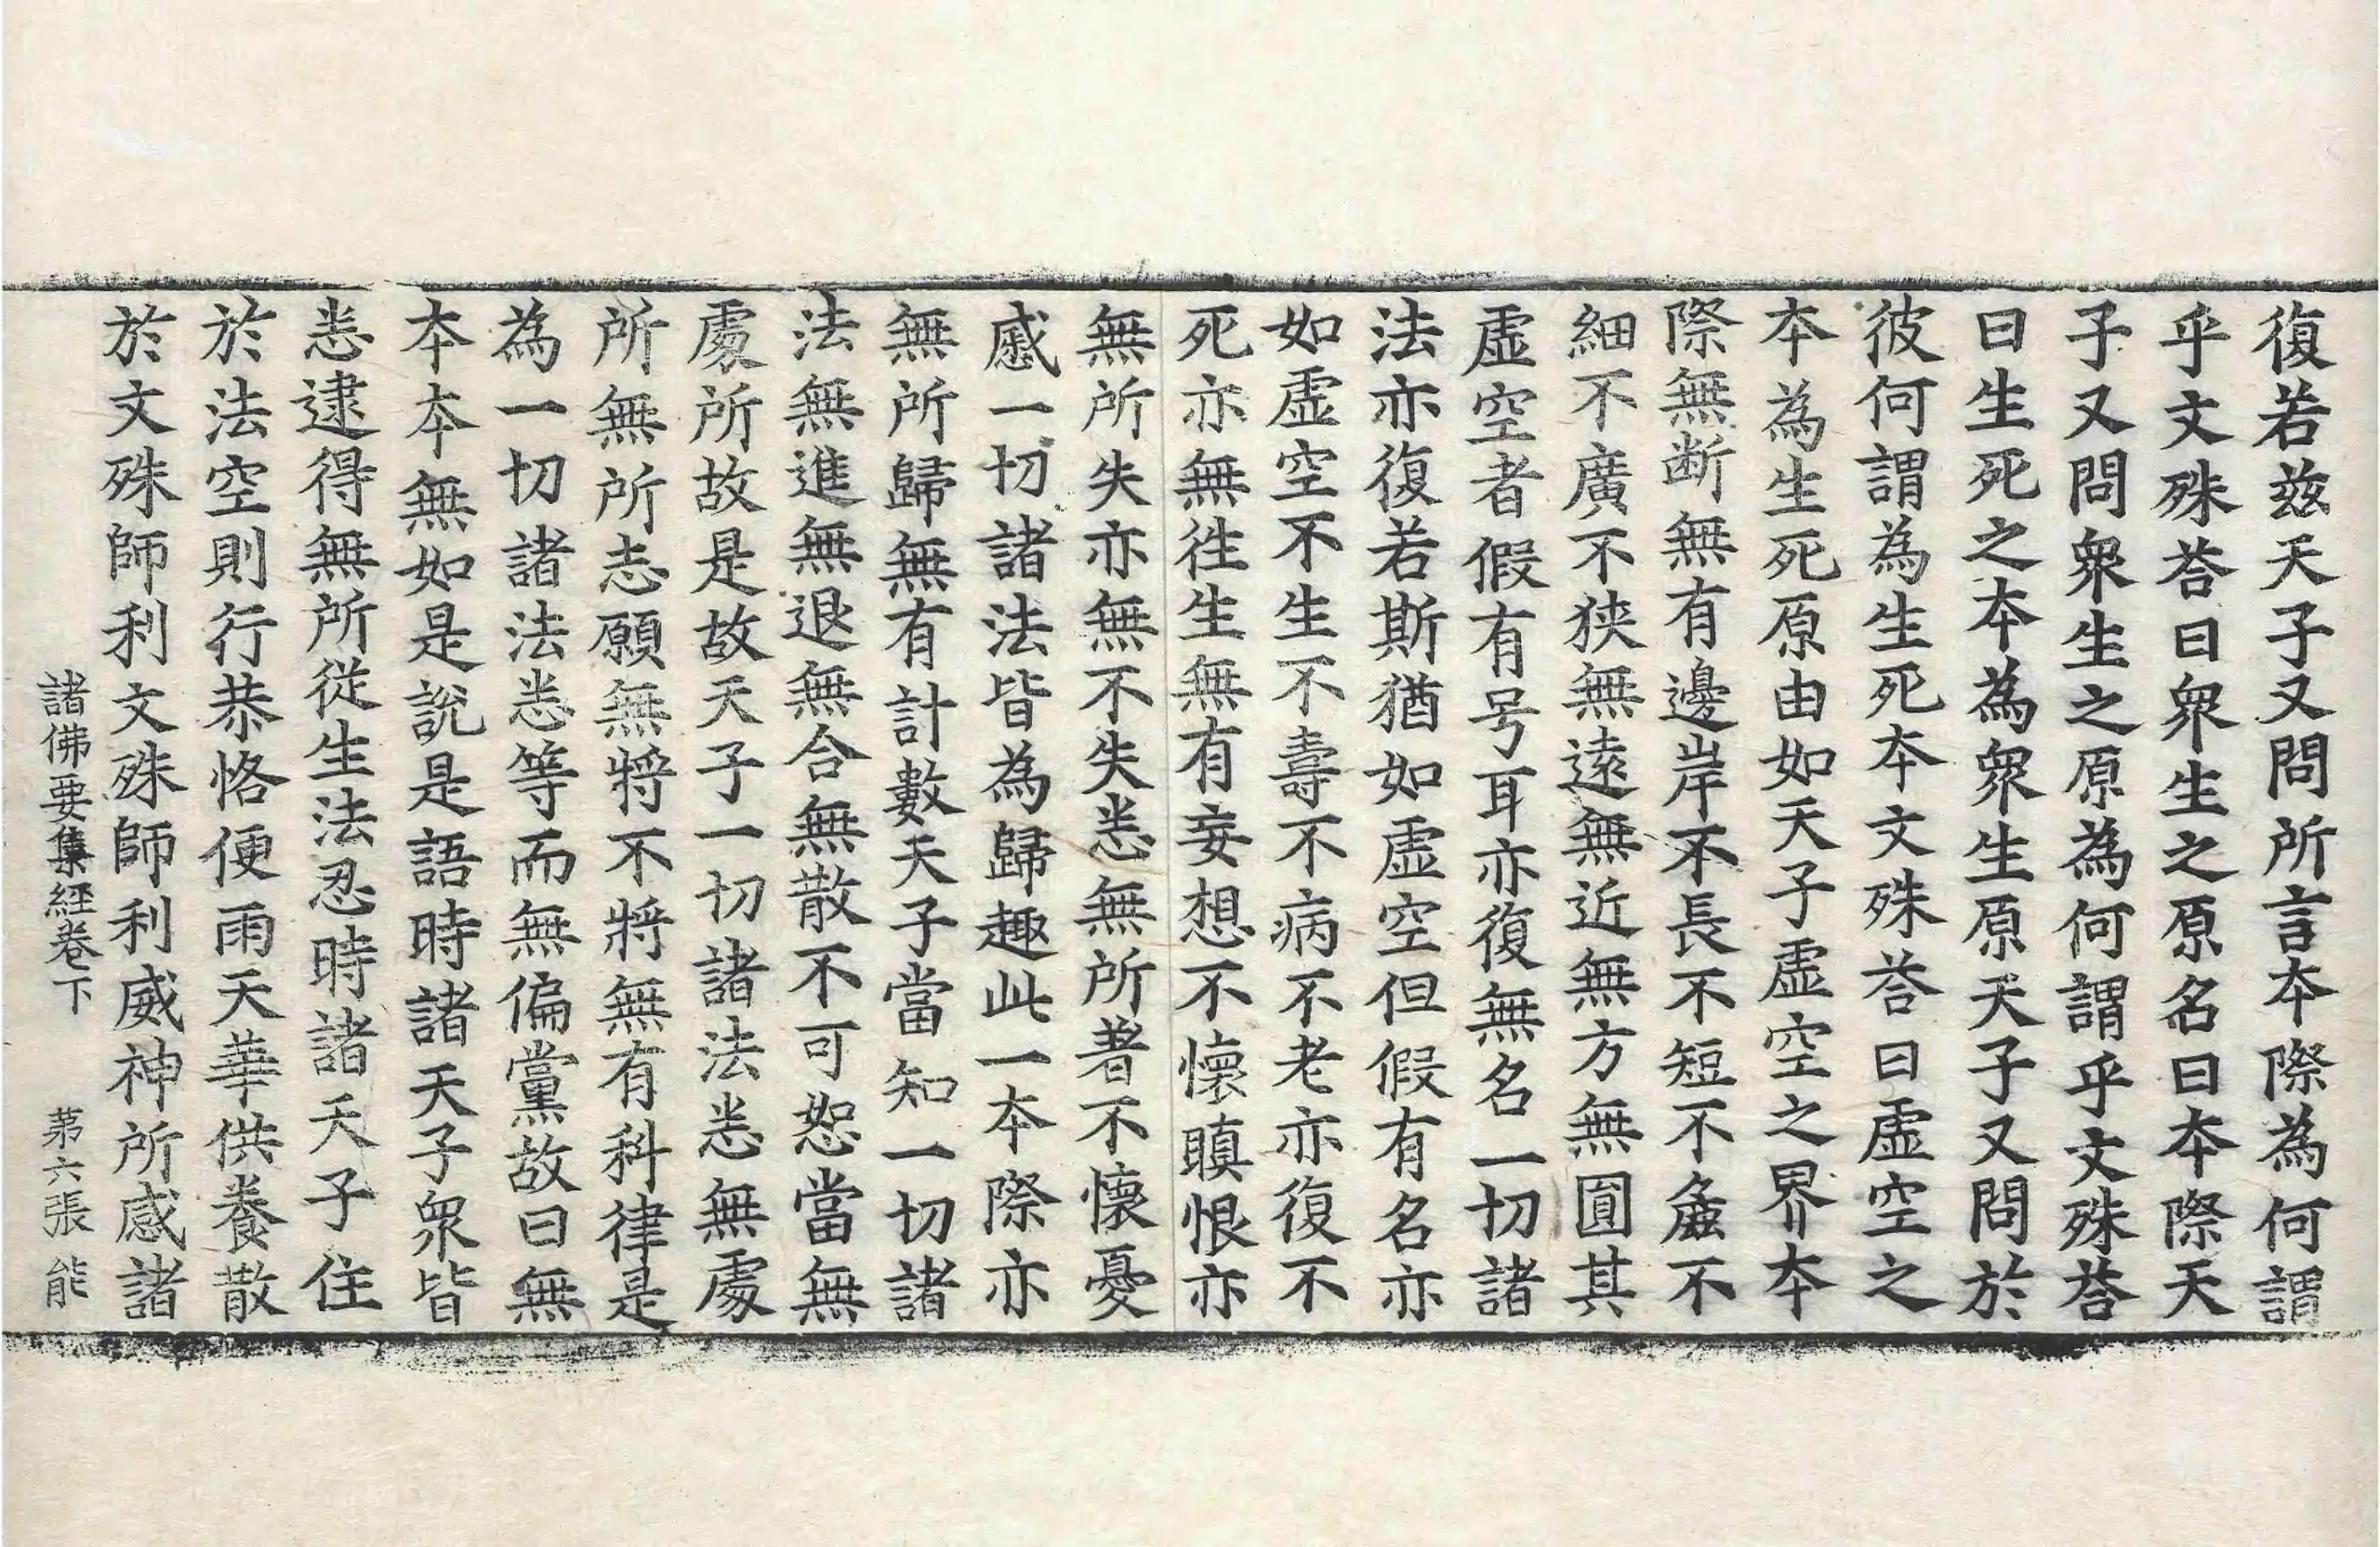 復若兹天子又問所言本際為何謂
乎文殊荅曰眾生之原名曰本際天
子又問眾生之原為何謂乎文殊荅
曰生死之本為眾生原天子又問於
彼何謂為生死本文殊荅曰虛空之
本為生死原由如天子虛空之界本
際無断無有邊岸不長不短不麁不
細不廣不狹無遠無近無方無圓其
虛空者假有号耳亦復無名一切諸
法亦復若斯猶如虛空但假有名亦
如虛空不生不壽不病不老亦復不
死亦無往生無有妄想不懷瞋恨亦
無所失亦無不失悉無所著不懷憂
慼一切諸法皆為歸趣此一本際亦
無所歸無有計數天子當知一切諸
法無進無退無合無散不可恕當無
處所故是故天子一切諸法悉無處
所無所志願無將不將無有科律是
為一切諸法悉等而無偏黨故曰無
本本無如是說是語時諸天子眾皆
悉逮得無所從生法忍時諸天子住
於法空則行恭恪便雨天華供養散
於文殊師利文殊師利威神所感諸
諸佛要集經卷下 第六張 能